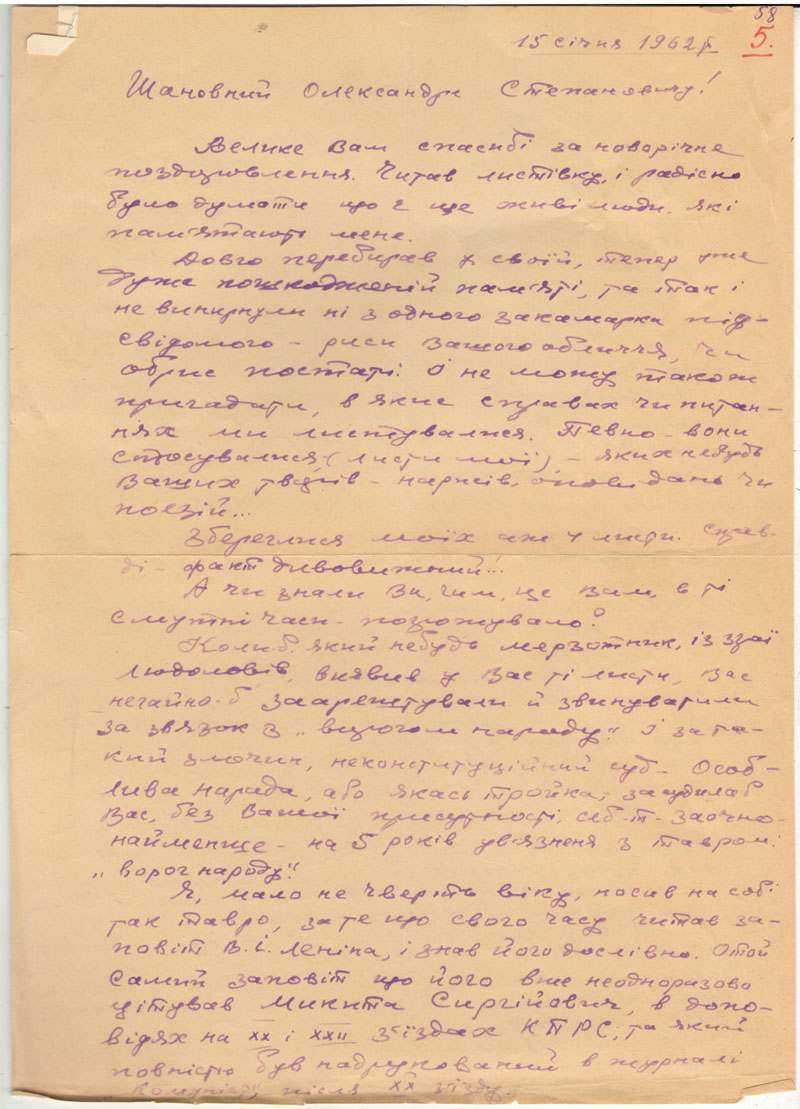 58
5.
15 січня 1962 р
Шановний Олександр Степановичу!
Велике Вам спасибі за новорічне
поздоровлення. Читав листівку, і радісно
було думати що є ще живі люди, які
пам'ятають мене.
Довго перебирав у своїй, тепер уже
дуже пошкодженій пам'яті, та так і
не випирнули ні з одного закамарка під-
свідомого – риси Вашого обличчя, чи
обрис постаті. І не можу також
пригадати, в яких справах чи питан-
нях ми листувалися. Певно – вони
стосувалися, (листи мої) – яких небудь
Ваших творів – нарисів, оповідань чи
поезій...
Збереглися моїх аж 4 листи. Справ-
ді – факт дивовижний!..
А чи знали Ви, чим, це Вам, в ті
смутні часи – погрожувало?
Коли б, який небудь мерзотник, із зграї
людоловів, виявив у Вас ті листи, Вас
негайно-б заарештували й звинуватили
за звязок з „ворогом народу“. І за та-
кий злочин, неконституційний суд – Особ-
лива Нарада, або якась тройка, засудила б
Вас, без Вашої присутності, себ-т- заочно –
найменше – на 5 років ув'язненя з тавром:
„ворог народу“.
Я, мало не чверть віку, носив на собі
так тавро, за те що свого часу читав за-
повіт В. І. Леніна, і знав його дослівно. Отой
самий заповіт що його вже неодноразово
цітував Микита Сергійович, в допо-
відях на XX і XXII з'їздах КПРС, та який
повністю був надрукований в журналі
Комуніст, після XX з'їзду.